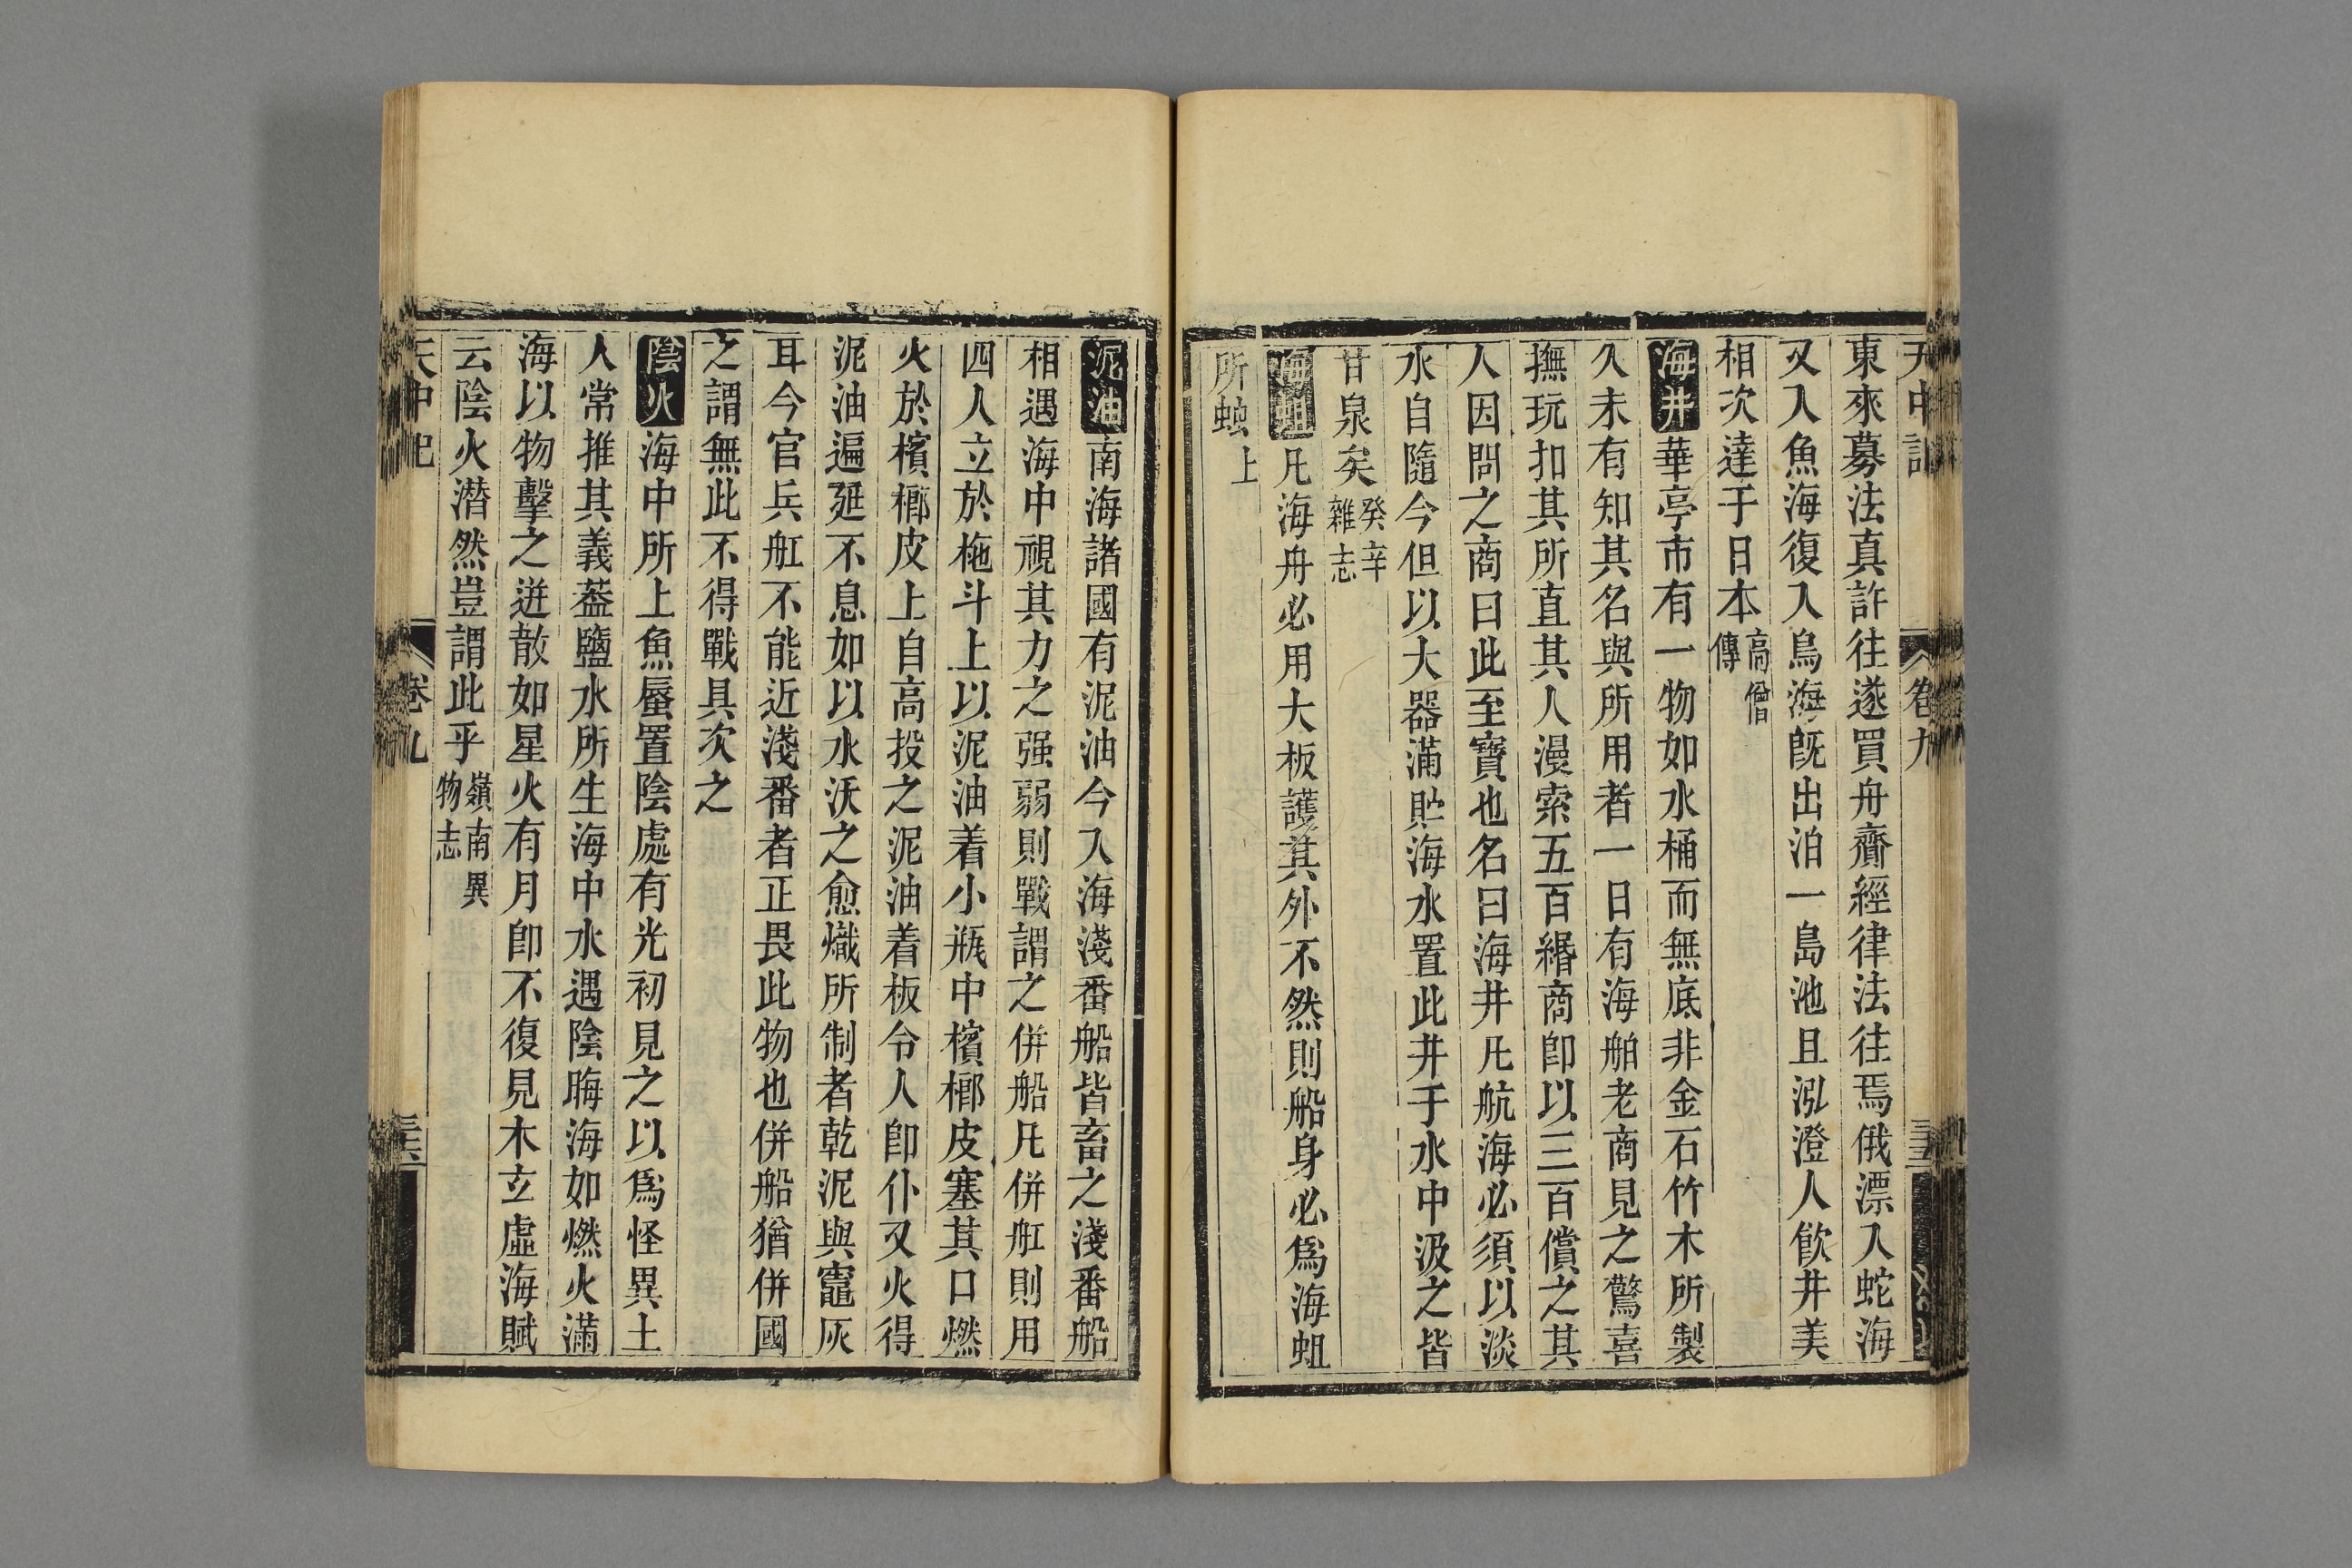 東來募法真許往遂買舟齎經律法往焉俄漂入蛇海
又入魚海復入烏海旣出泊一島池且泓澄人飮井美
相次達于日本高僧傳
海井華亭市有一物如水桶而無底非金石竹木所製
久未有知其名與所用者一日有海舶老商見之驚喜
撫玩扣其所直其人漫索五百緡商卽以三百償之其
人因問之商曰此至寶也名曰海井凡航海必須以淡
水自隨今但以大器滿貯海水置此井于水中汲之皆
甘泉矣癸辛雜志
海蛆凡海舟必用大板護其外不然則船身必爲海蛆
所蝕上
泥油南海諸國有泥油今入海淺番船皆畜之淺番船
相遇海中視其力之强弱則戰謂之併船凡併舡則用
四人立於柂斗上以泥油着小瓶中檳榔皮塞其口燃
火於檳榔皮上自高投之泥油着板令人卽仆又火得
泥油遍延不息如以水沃之愈熾所制者乾泥與竈灰
耳今官兵舡不能近淺番者正畏此物也併船猶併國
之謂無此不得戰具次之
陰火海中所上魚蜃置陰處有光初見之以爲怪異土
人常推其義葢鹽水所生海中水遇陰晦海如燃火滿
海以物擊之迸散如星火有月卽不復見木玄虛海賦
云陰火潜然豈謂此乎嶺南異物志
天中記
卷九